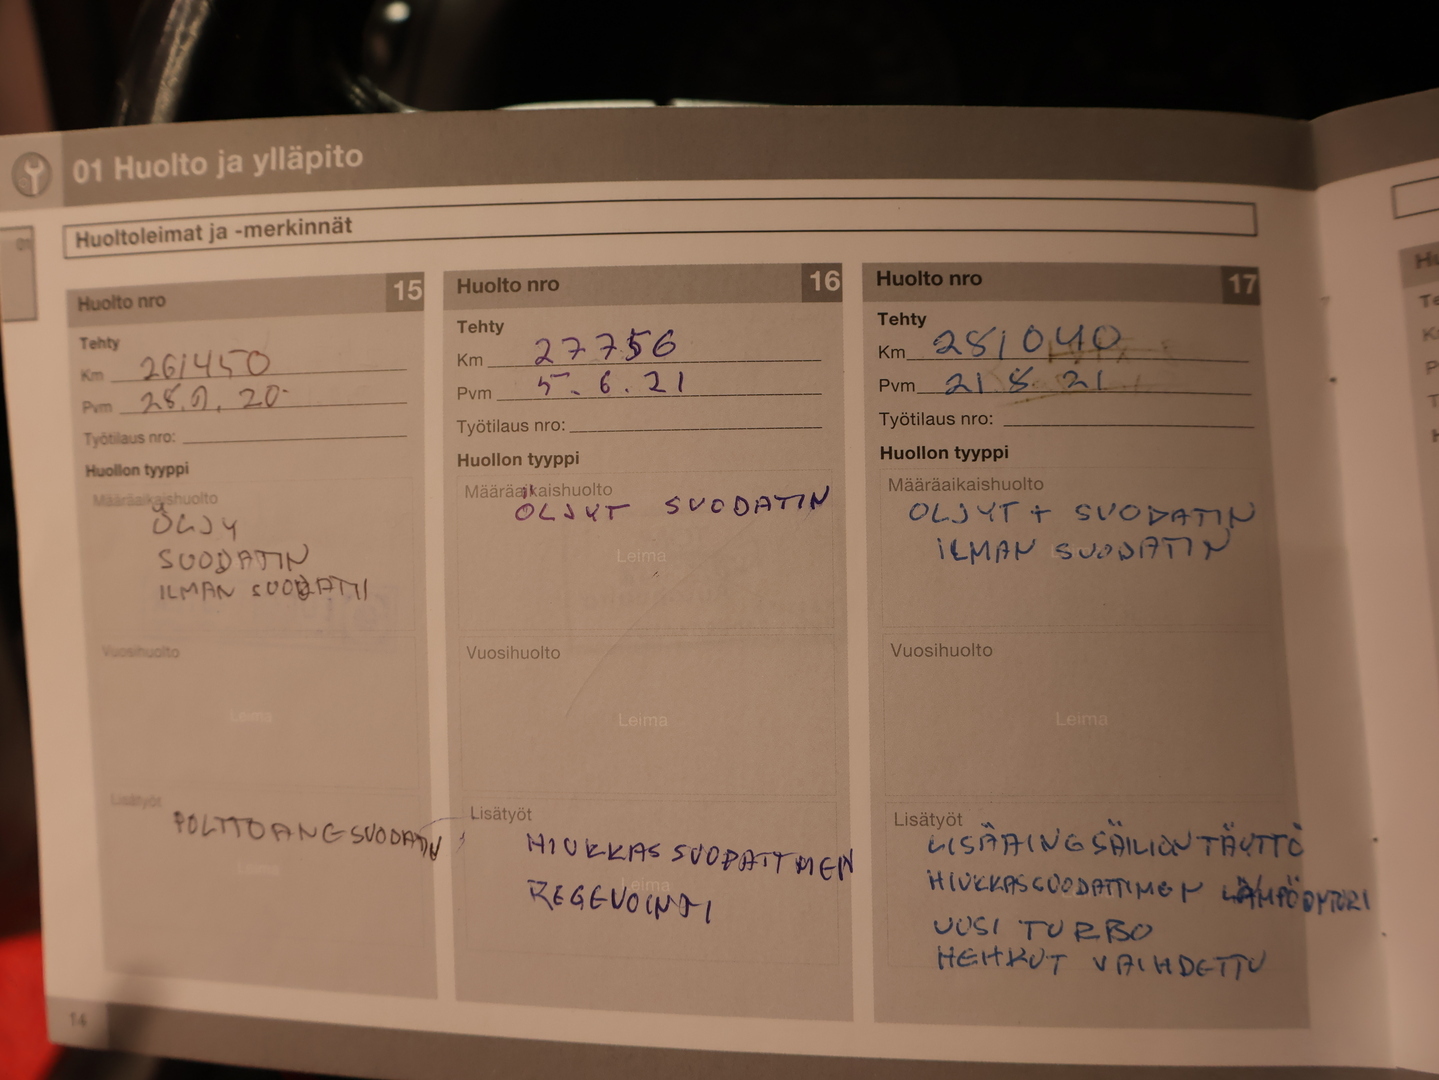 01 Huolto ja ylläpito
01
Huoltoleimat ja -merkinnät
Huolto nro 15
Tehty
Km 261450
Pvm 28.9. 20
Työtilaus nro:
Huollon tyyppi
Määräaikaishuolto
ÖLJY
SUODATIN
ILMAN SUODATTI
Vuosihuolto
Leima
Lisätyöt
POLTTOANESUODATIN
Leima
14
Huolto nro 16
Tehty
Km 27756
Pvm 5.6.21
Työtilaus nro:
Huollon tyyppi
Määräaikaishuolto
ÖLJYT SUODATIN
Leima
Vuosihuolto
Leima
Lisätyöt
HIUKKASSUODATTMEN
Leima
Huolto nro 17
Tehty
Km 281040
Pvm 21 8 21
Työtilaus nro:
Huollon tyyppi
Määräaikaishuolto
OLJYT + SUODATIN
ILMAN SUODATIN
Vuosihuolto
Leima
Lisätyöt
LISÄAINESÄILIÖN TÄYTTÖ
HIUKKASSUODATTIMEN
UUSI TURBO
HEHKUT VAIHDETTU